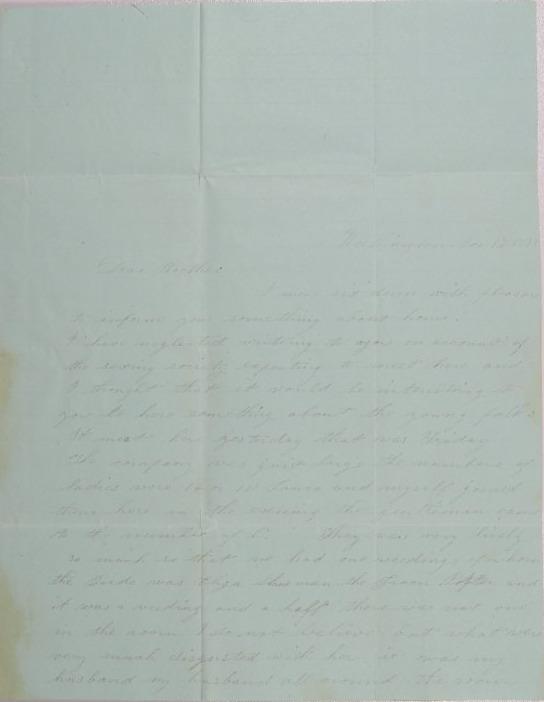 Dear Brother
I now sit down with pleasure
to inform you something about home.
I have neglected writing to you on account of
the sewing society expecting to meet here and
I thought that it would be interesting to
you to here something about the young folks
It met here yesterday that was Friday
The company was quite large the number of
ladies were 10 or Laura and myself joined
them here in the evening the gentleman came
to the number of They was very lively
so much so that we had one wedding of whom
the Bride was Eliza Shuman the Groom and
it was a weding and a haff there was not one
in the room I do not believe but what were
very much disgusted with her it was my
husband my husband all around the room